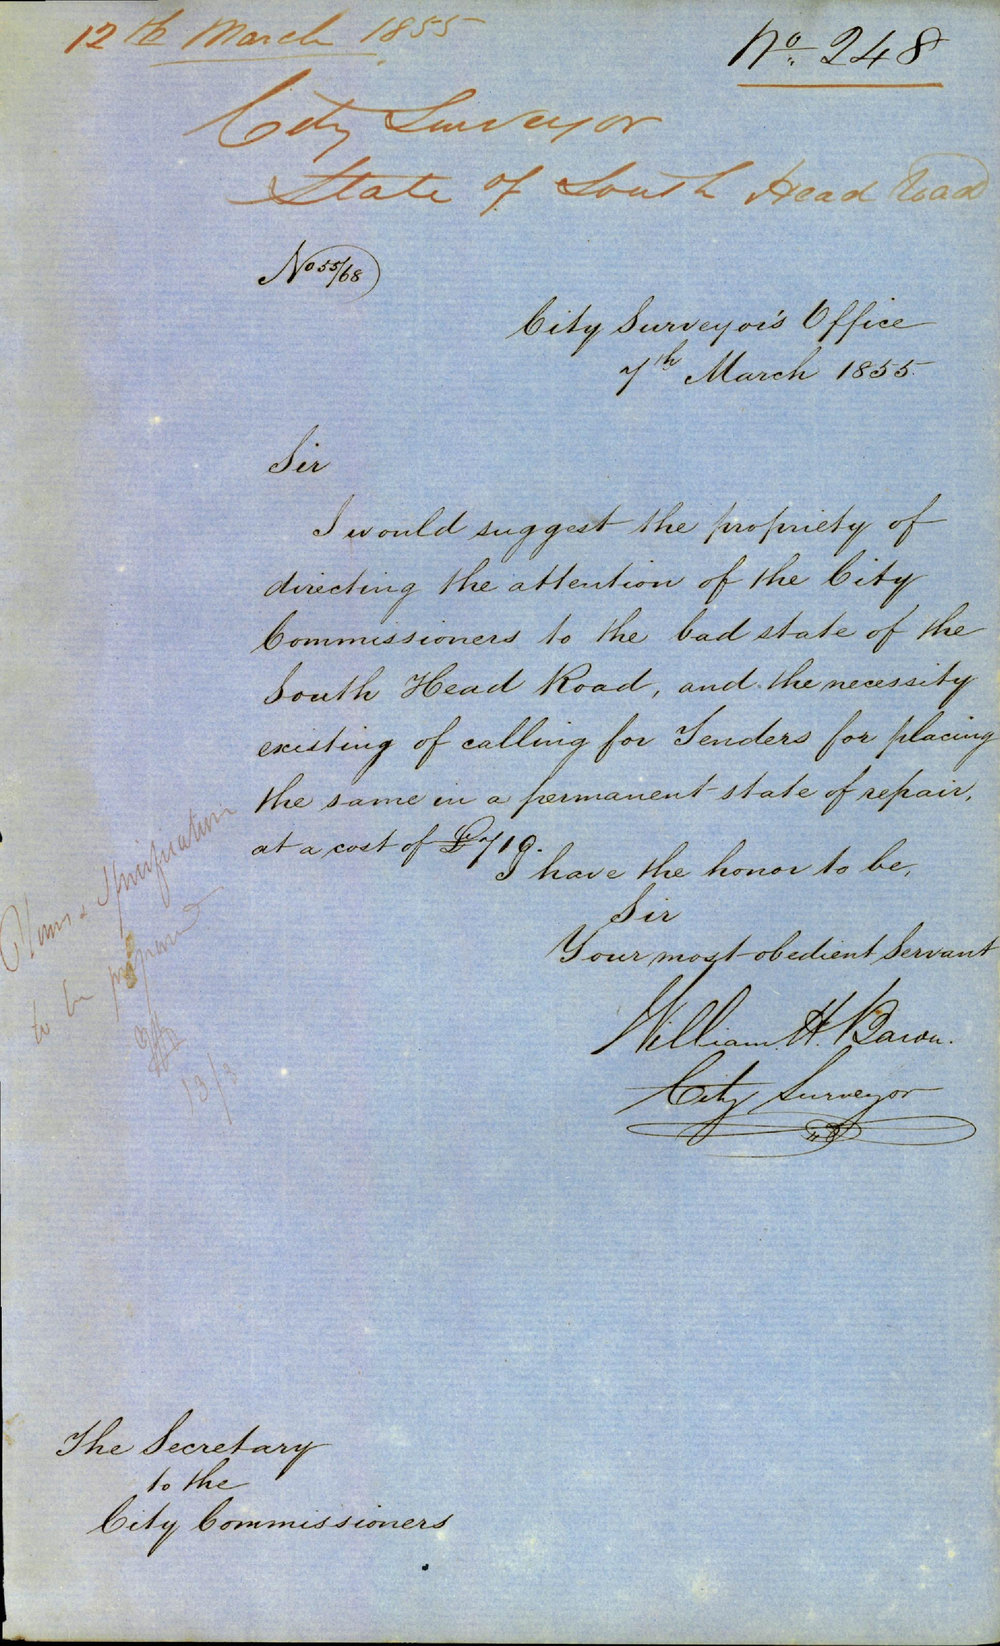 12th March 1855
No. 248
City Surveyor
State of South Head Road
No 55/68
City Surveyor's Office
7th March 1855.
Sir
I would suggest the propriety of
directing the attention of the City
Commissioners to the bad state of the
South Head Road, and the necessity
existing of calling for Tenders for placing
the same in a permanent state of repair,
at a cost of £719.
I have the honor to be,
Sir
Your most obedient Servant
William H. Baron.
City Surveyor
Plans & Specification
to be prepared
13/3
The Secretary
to the
City Commissioners